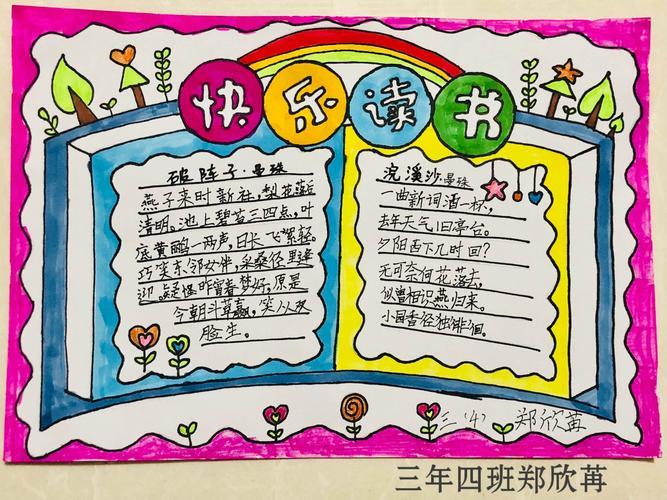 快乐读书
破阵子·晏殊
燕子来时新社,梨花落后
清明。池上碧苔三四点,叶
底黄鹂一两声,日长飞絮轻。
巧笑东邻女伴,采桑径里逢
迎。疑怪昨宵春梦好,原是
今朝斗草赢,笑从双
脸生。
浣溪沙·晏殊
一曲新词酒一杯,
去年天气旧亭台。
夕阳西下几时回?
无可奈何花落去,
似曾相识燕归来。
小园香径独徘徊。
三(4) 郑欣苒
三年四班郑欣苒